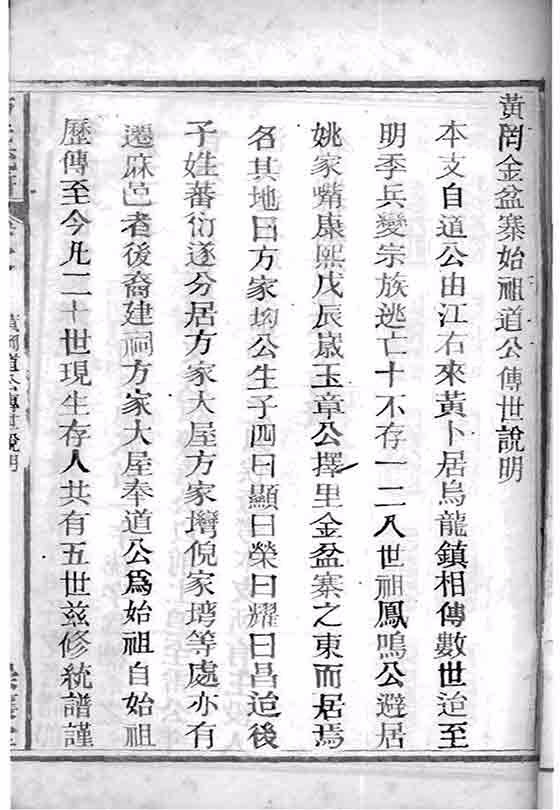 黃岡金盆寨始祖道公傳世說明
本支自道公由江右來黃卜居烏龍鎮相傳數世迨至
明季兵變宗族逃亡十不存一二八世祖鳳鳴公避居
姚家嘴康熙戊辰歲玉章公擇里金盆寨之東而居焉
名其地曰方家塆公生子四曰顯曰榮曰耀曰昌迨後
子姓蕃衍遂分居方家大屋方家塆倪家塆等處亦有
遷麻邑者後裔建祠方家大屋奉道公為始祖自始祖
歷傳至今凡二十世現生存人共有五世茲修統譜謹
黃岡道公傳世說明